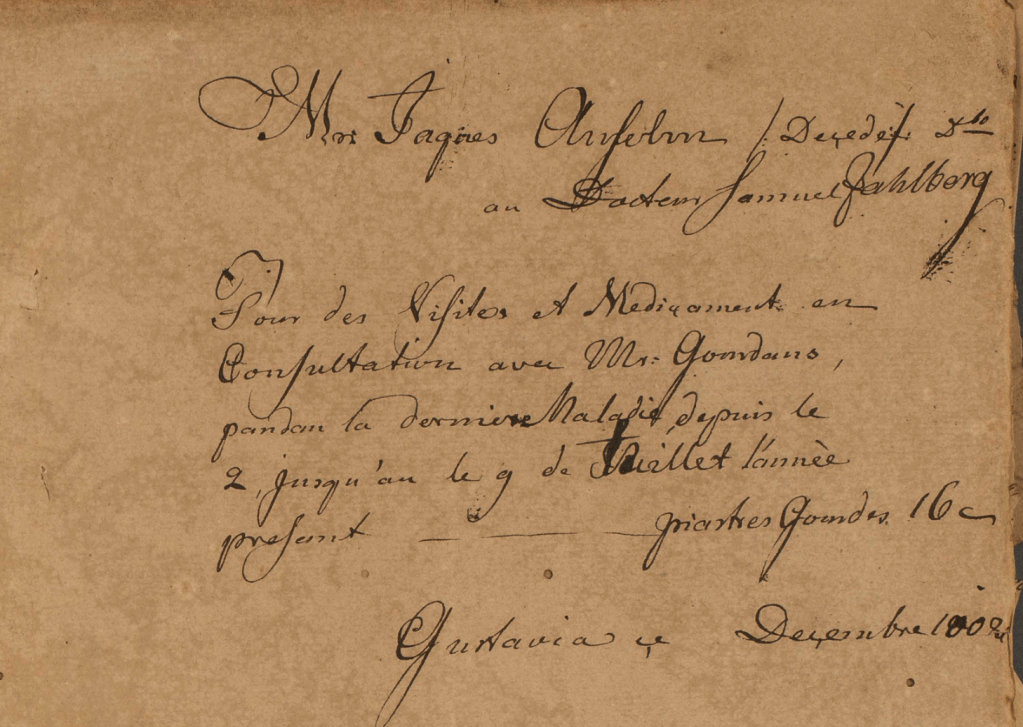 Mrs Jaques Anselm /: Deçedé :/ Dto
au Docteur Samuel Fahlberg
Pour des Visites et Mediçament en
Consultation avec Mr: Gourdans,
pandan la derniere Maladie, depuis le
2, jusqu'au le 9 de Juillet l'année
presant — — — piastres Gourdes 16
Gustavia çe Deçembre 1802